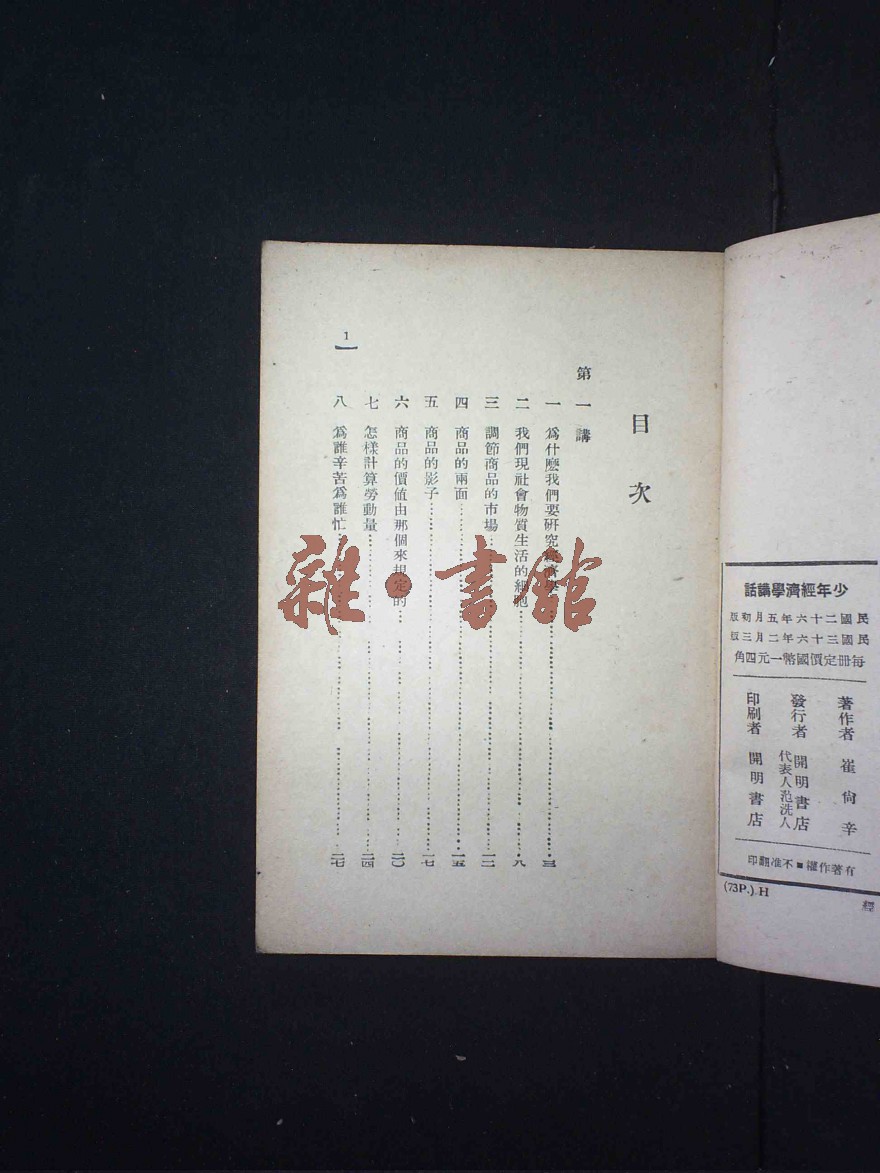 少年經濟學講話
民國二十六年五月初版
民國三十六年二月三版
每冊定價國幣一元四角
著作者 崔尙辛
發行者 開明書店
代表人范洗人
印刷者 開明書店
有著作權■不准翻印
(73P.) H
經
目次
第一講
一 爲什麽我們要研究經濟學……三
二 我們現社會物質生活的細胞……八
三 調節商品的市場……一二
四 商品的兩面……一五
五 商品的影子……一七
六 商品的價値由那個來規定的……二〇
七 怎樣計算勞動量……二四
八 爲誰辛苦爲誰忙……二七
1
雜·書館